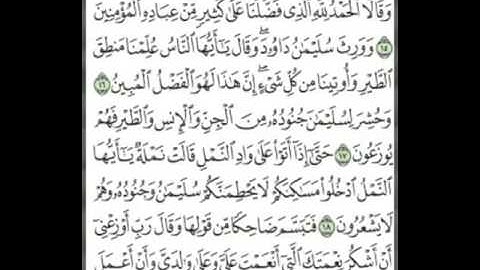 وَقَالَا ٱلْحَمْدُ لِلَّهِ ٱلَّذِى فَضَّلَنَا عَلَىٰ كَثِيرٍ مِّنْ عِبَادِهِ ٱلْمُؤْمِنِينَ
١٥ وَوَرِثَ سُلَيْمَٰنُ دَاوُۥدَ ۖ وَقَالَ يَٰٓأَيُّهَا ٱلنَّاسُ عُلِّمْنَا مَنطِقَ
ٱلطَّيْرِ وَأُوتِينَا مِن كُلِّ شَىْءٍ ۖ إِنَّ هَٰذَا لَهُوَ ٱلْفَضْلُ ٱلْمُبِينُ ١٦
وَحُشِرَ لِسُلَيْمَٰنَ جُنُودُهُۥ مِنَ ٱلْجِنِّ وَٱلْإِنسِ وَٱلطَّيْرِ فَهُمْ
يُوزَعُونَ ١٧ حَتَّىٰٓ إِذَآ أَتَوْا۟ عَلَىٰ وَادِ ٱلنَّمْلِ قَالَتْ نَمْلَةٌ يَٰٓأَيُّهَا
ٱلنَّمْلُ ٱدْخُلُوا۟ مَسَٰكِنَكُمْ لَا يَحْطِمَنَّكُمْ سُلَيْمَٰنُ وَجُنُودُهُۥ وَهُمْ
لَا يَشْعُرُونَ ١٨ فَتَبَسَّمَ ضَاحِكًا مِّن قَوْلِهَا وَقَالَ رَبِّ أَوْزِعْنِىٓ
أَنْ أَشْكُرَ نِعْمَتَكَ ٱلَّتِىٓ أَنْعَمْتَ عَلَىَّ وَعَلَىٰ وَٰلِدَىَّ وَأَنْ أَعْمَلَ